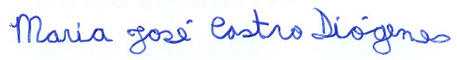 Maria José Castro Diógenes